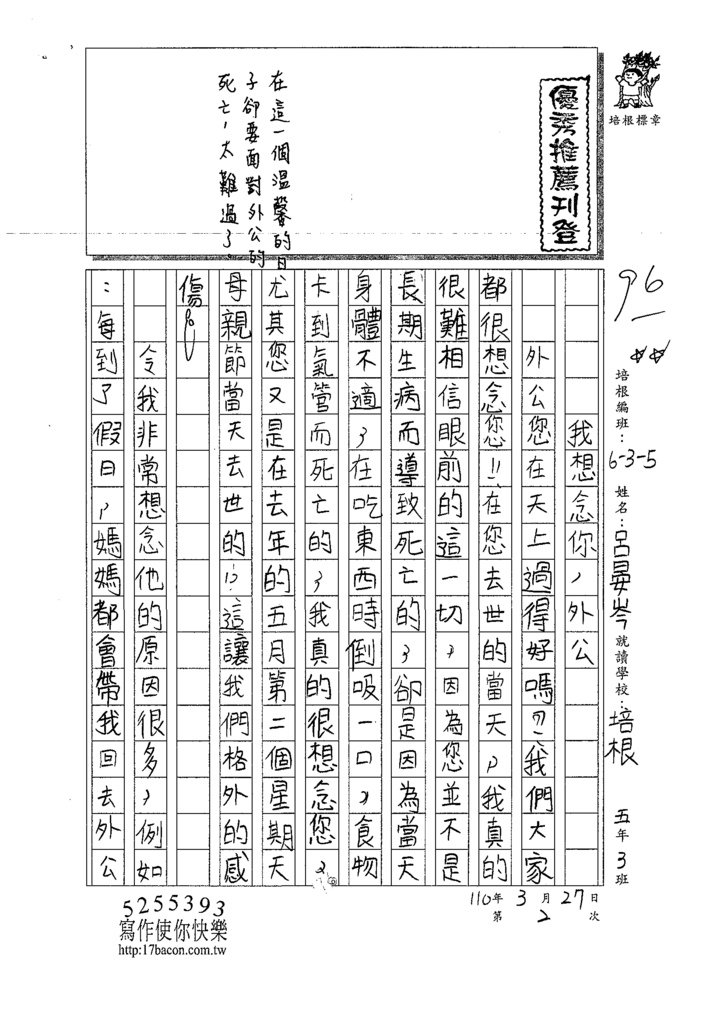 培根標章
優秀推薦刊登
在這一個溫馨的日
子卻要面對外公的
死亡，太難過了。
96
培根編班：6-3-5 姓名：呂晏岑 就讀學校：培根 五年3班
110年3月27日
第2次
我想念你，外公
外公您在天上過得好嗎？我們大家
都很想念您!!在您去世的當天，我真的
很難相信眼前的這一切，因為您並不是
長期生病而導致死亡的，卻是因為當天
身體不適，在吃東西時倒吸一口，食物
卡到氣管而死亡的，我真的很想念您，
尤其您又是在去年的五月第二個星期天
母親節當天去世的!?這讓我們格外的感
傷。
令我非常想念他的原因很多，例如
：每到了假日，媽媽都會帶我回去外公
5255393
寫作使你快樂
http:17bacon.com.tw